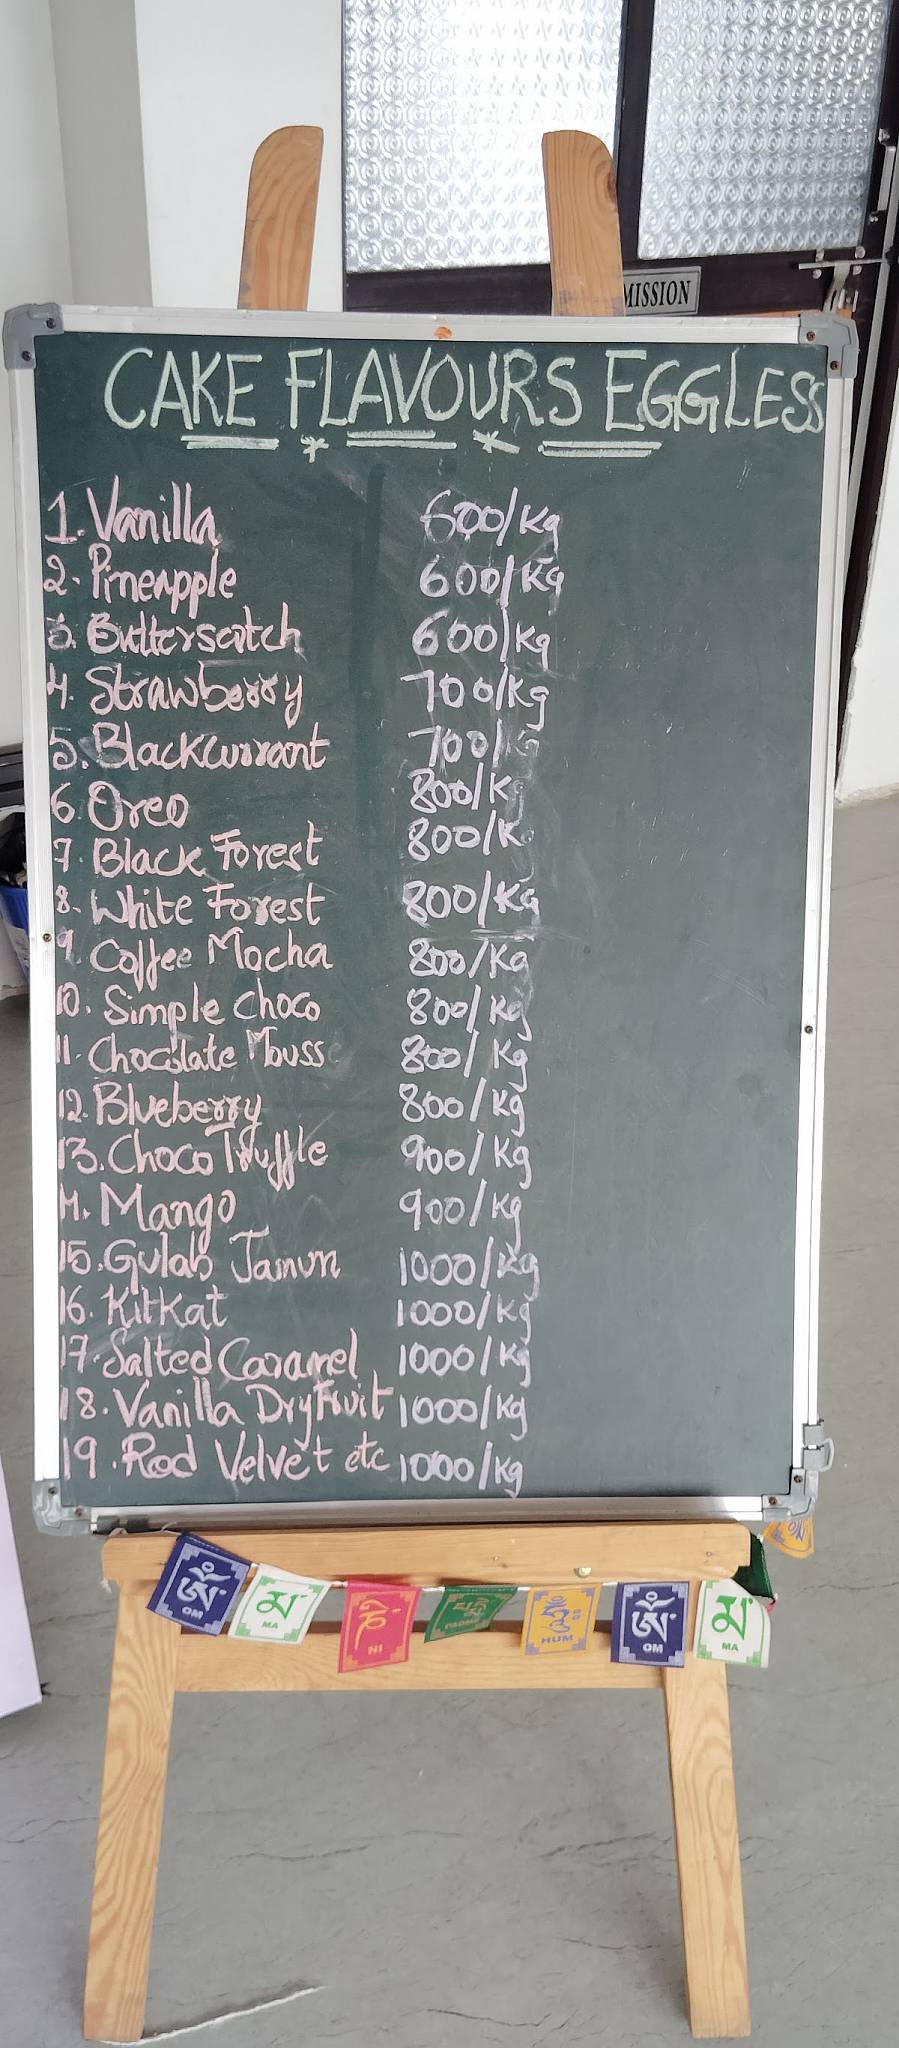 MISSION
CAKE FLAVOURS EGGLESS
1. Vanilla 600/Kg
2. Pineapple 600/Kg
3. Butterscotch 600/Kg
4. Strawberry 700/Kg
5. Blackcurrant 700/K
6 Oreo 800/K
7. Black Forest 800/K
8. White Forest 800/Kg
9 Coffee Mocha 800/Kg
10. Simple Choco 800/Kg
11. Chocolate Mouss 800/Kg
12. Blueberry 800/Kg
13. Choco Truffle 900/Kg
14. Mango 900/Kg
15. Gulab Jamun 1000/Kg
16. KitKat 1000/Kg
17. Salted Caramel 1000/Kg
18. Vanilla DryFruit 1000/Kg
19. Red Velvet etc 1000/Kg
OM MA NI PADME HUM OM MA